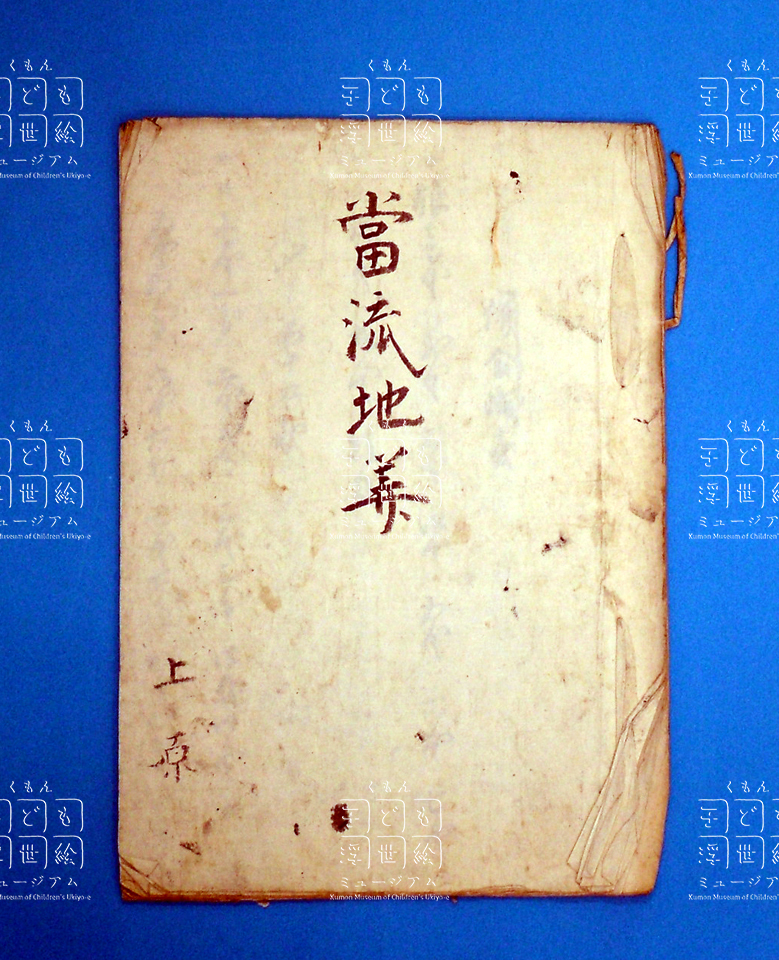 當流地筭
上原
くもん
子ども
浮世絵
ミュージアム
Kumon Museum of Children's Ukiyo-e